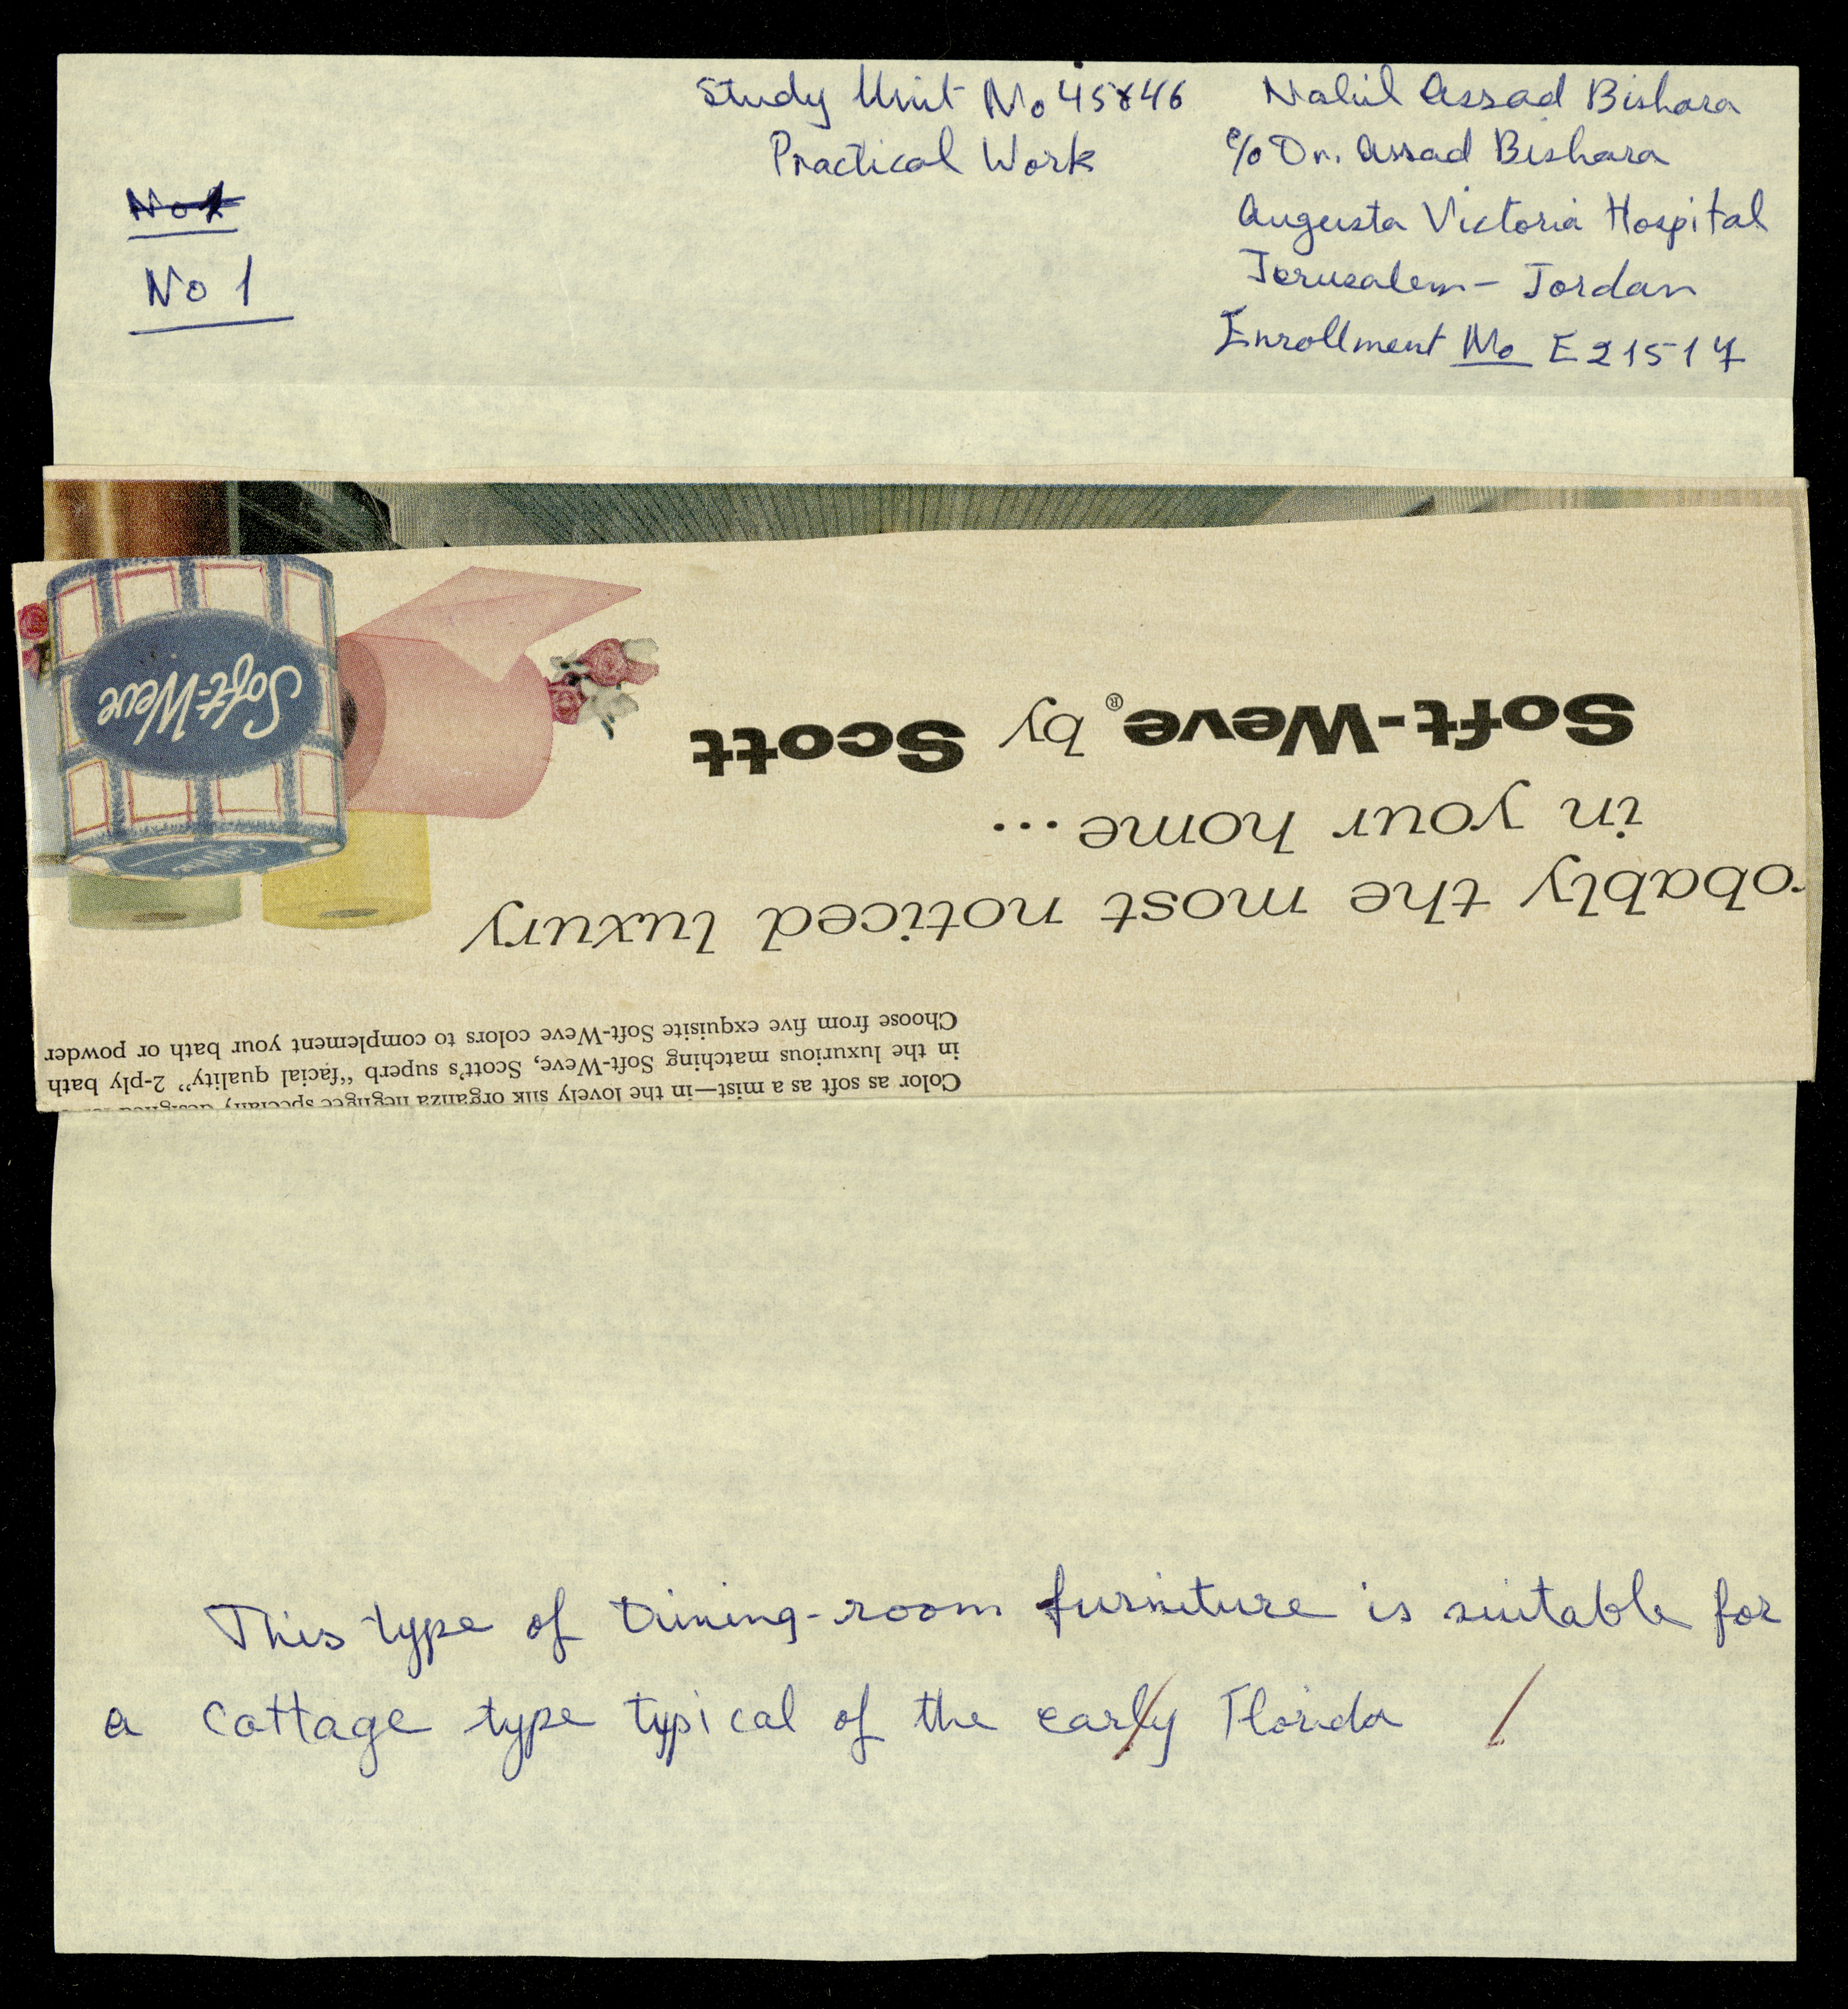 Study Unit No 45846
Practical Work
Nahil Assad Bishara
c/o Dr. Assad Bishara
Augusta Victoria Hospital
Jerusalem - Jordan
Enrollment No E21517
No 1
No 1
Color as soft as a mist—in the lovely silk organza negligee specially designed
in the luxurious matching Soft-Weve, Scott's superb “facial quality” 2-ply bath
Choose from five exquisite Soft-Weve colors to complement your bath or powder
obably the most noticed luxury
in your home...
Soft-Weve® by Scott
Soft-Weve
This type of Dining-room furniture is suitable for
a Cottage type typical of the early Florida